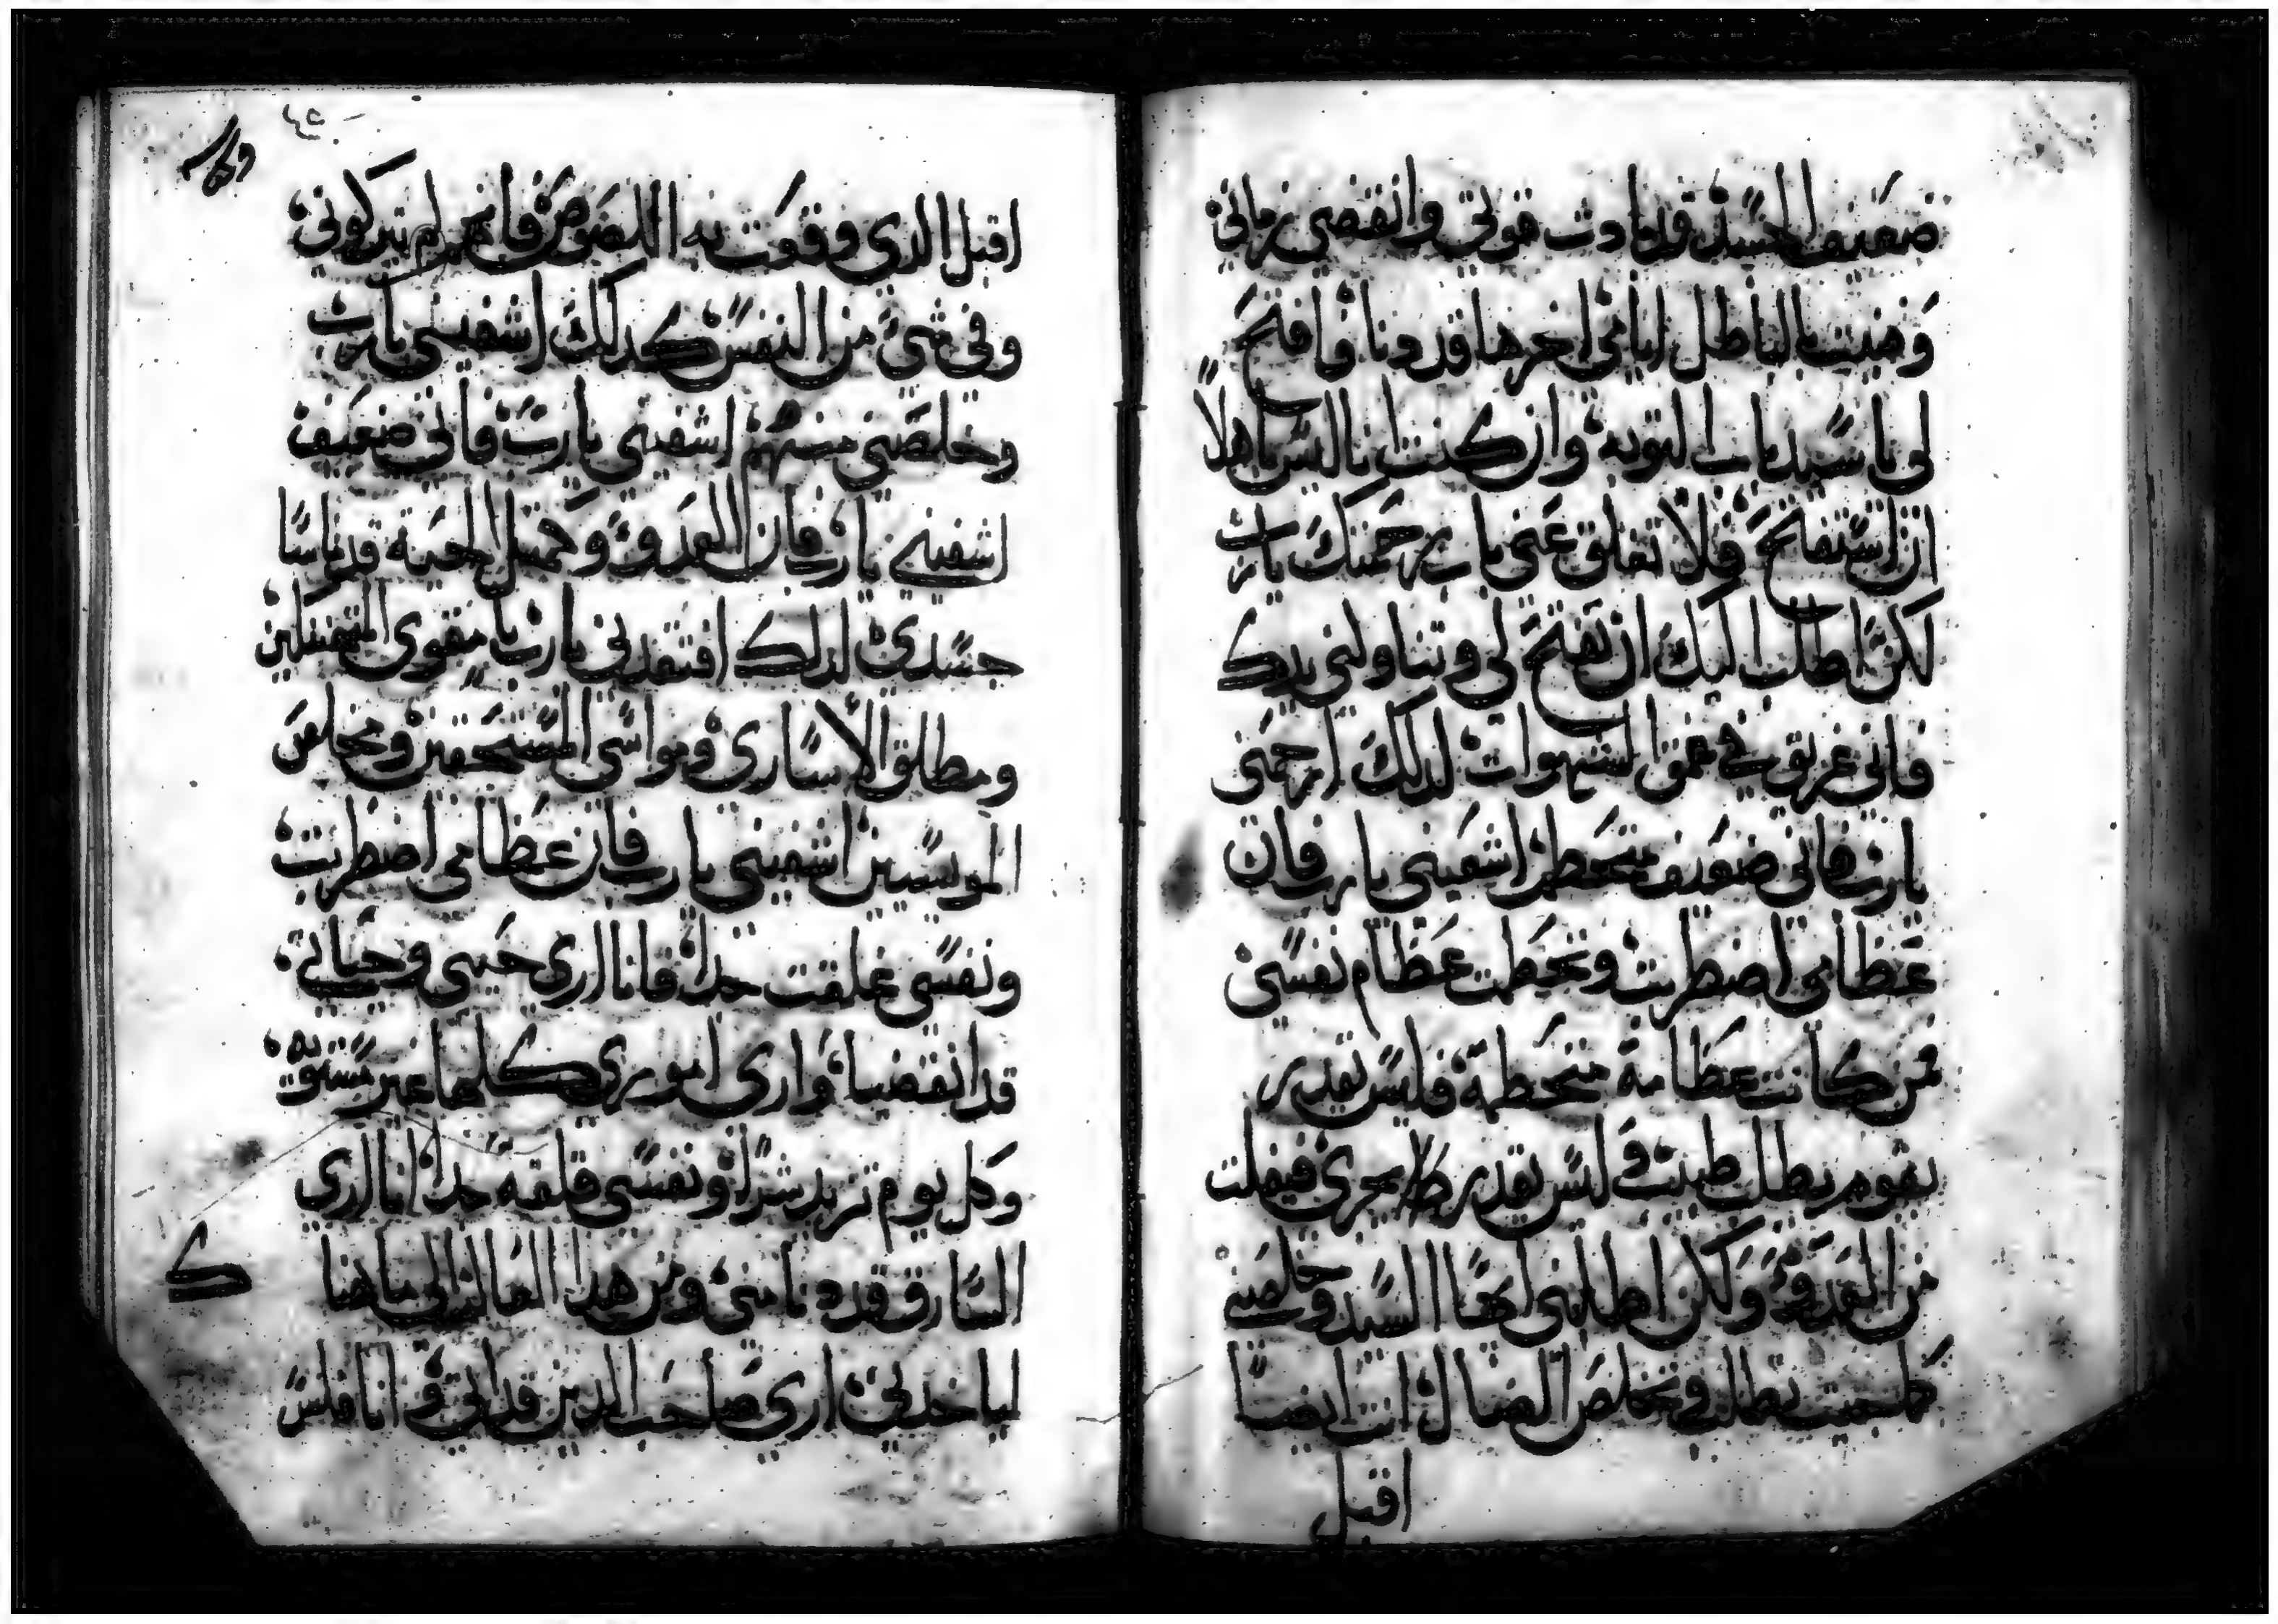 ضعيف الجسد وقد بادت قوتي وانقضى زماني
وفنيت بالباطل ايامي اخرها قد دنا وافتح
لي يا سيد باب التوبه وان كنت انا ليس اهلاً
ان استفتح فلا تغلق عني باب رحمتك يارب
لكن اطلب اليك ان تفتح لي وتناولني يدك
فاني غريق في عمق الشهوات لدلك ارحمني
يارب فاني ضعيف متحطم اشفيني يارب فان
عظامي اضطربت وتحطمت عظام نفسي
فمن كانت عظامه متحطمة فليس يقدر
يقوم يطلب طبيب وليس يقدر يجري فيفلت
من العدو ولكن اطلبني ايها السيد وخلصني
كما جيت تطلب وتخلص الضال انت ايضاً
اقبل
اقبل الدي وقعت به اللصوص فانهم لم يتركوني
وفي شيً من النفس كدلك اشفيني يارب
وخلصني منهم اشفيني يارب فاني ضعيف
اشفيني يارب فان العدو وجميل الحية قد
جسدي لدلك افتقدني يارب يا مقوي
ومطلق الأسارى ومواسي ومخلص
اشفيني يارب فان عظامي اضطربت
ونفسي قلقت جدا فانا اري حيي وحياتي
قد انقضيا واري اموري كلها غير مستوية
وكل يوم تزيد شراً ونفسي قلقه جدا انا اري
السارق قد دنا مني ومن هدا العالم الى ها هنا
لياخدني اري صاحب الدين قد اتي وانا فليس